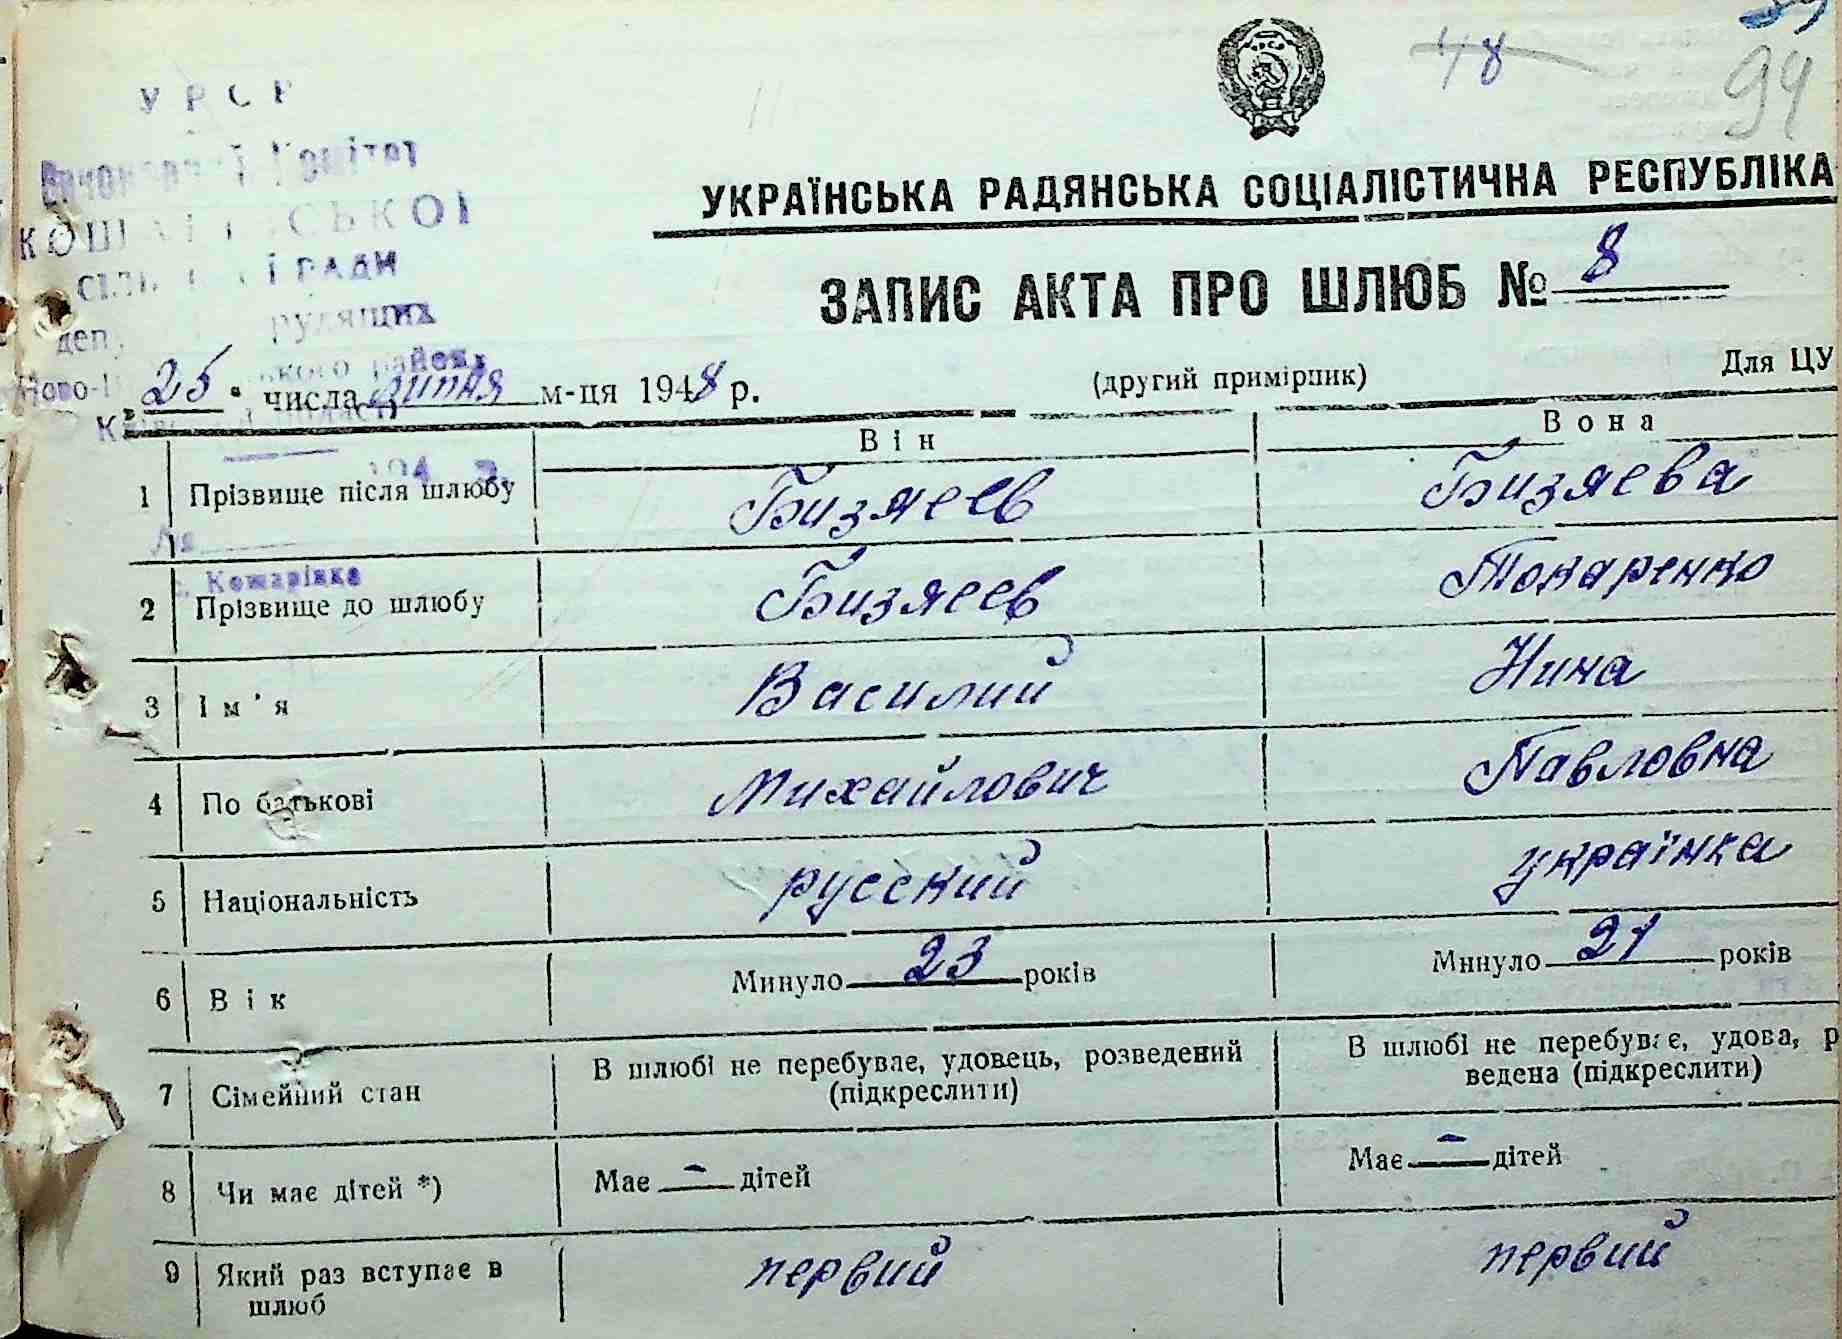 48
94
УРСР
Виконавчий Комітет
РАДИ
УКРАЇНСЬКА РАДЯНСЬКА СОЦІАЛІСТИЧНА РЕСПУБЛІКА
ЗАПИС АКТА ПРО ШЛЮБ № 8
25 " числа липня м-ця 1948 р. (другий примірник) Для ЦУ
Він Вона
1 Прізвище після шлюбу Бизяеев Бизяева
с. Кошарівка
2 Прізвище до шлюбу Бизяеев Токаренко
3 Ім'я Василий Нина
4 По батькові Михайлович Павловна
5 Національність русский українка
6 Вік Минуло 23 років Минуло 21 років
7 Сімейний стан В шлюбі не перебуває, удовець, розведений В шлюбі не перебуває, удова, р
(підкреслити) ведена (підкреслити)
8 Чи має дітей *) Має - дітей Має - дітей
9 Який раз вступає в первий первий
шлюб